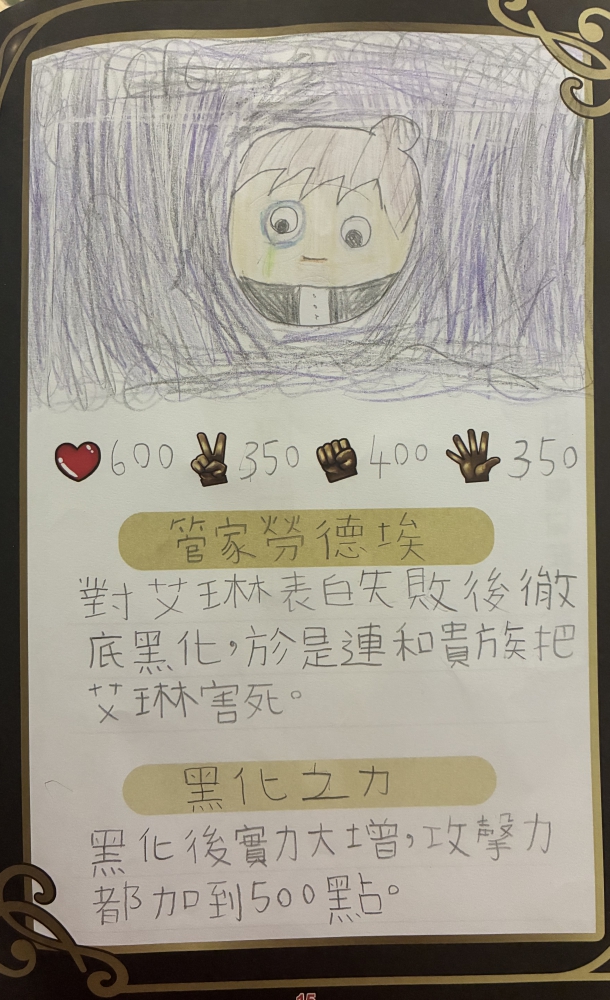 600 350 400 350
管家勞德埃
對艾琳表白失敗後徹
底黑化,於是連和貴族把
艾琳害死。
黑化之力
黑化後實力大增,攻擊力
都加到500點。
15